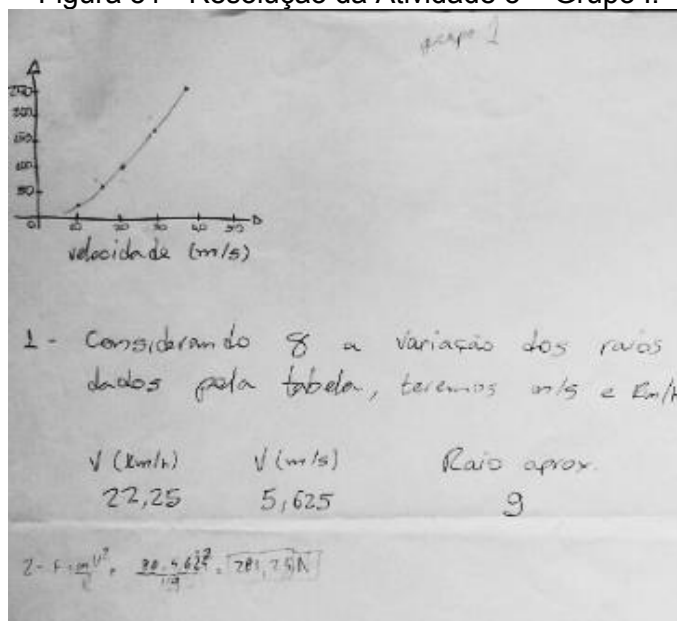 Figura 64 - Resolução da Atividade 3 - Grupo I.
grupo 1
250
200
150
100
50
0 10 20 30 40 50
velocidade (m/s)
1 - Considerando 8 a variação dos raios
dados pela tabela, teremos m/s e Km/h
V (Km/h) V (m/s) Raio aprox.
22,25 5,625 9
2 - F = mv²
281,25N